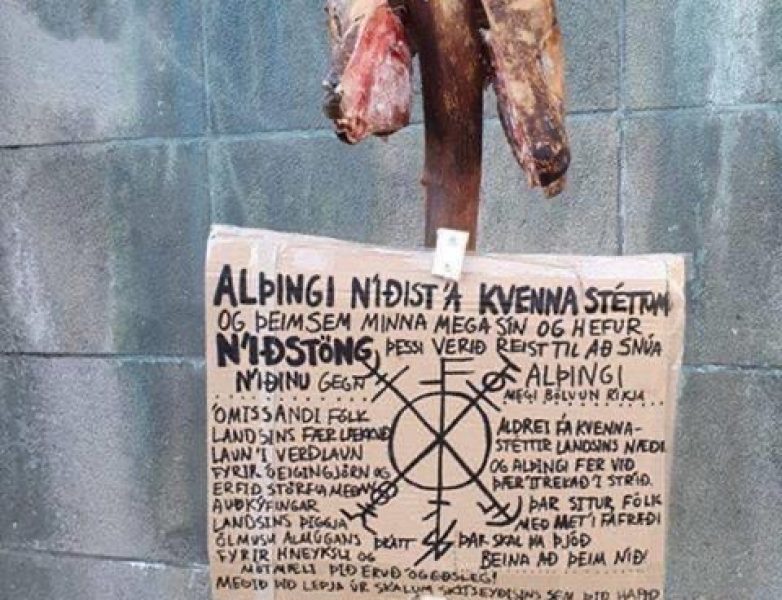 ALÞINGI NÍÐIST Á KVENNASTÉTTUM
OG ÞEIM SEM MINNA MEGA SÍN OG HEFUR
NÍÐSTÖNG ÞESSI VERIÐ REIST TIL AÐ SNÚA
NÍÐINU GEGN ALÞINGI
MEGI BÖLVUN RÍKJA
ÓMISSANDI FÓLK
LANDSINS FÆR LÆKKUÐ
LAUN Í VERÐLAUN
FYRIR ÓEIGINGJÖRN OG
ERFIÐ STÖRF Á MEÐAN
AUÐKÝFINGAR
LANDSINS ÞIGGJA
ÖLMUSU ALMÚGANS
FYRIR HNEYKSLI OG
ÞIÐ ERUÐ ÓGEÐSLEG!
MEGIÐ ÞIÐ LEPJA ÚR SKÁLUM SKÍTSEYÐISINS SEM ÞIÐ HAFIÐ
ALDREI FÁ KVENNA-
STÉTTIR LANDSINS NÆÐI
OG ALÞINGI FER VIÐ
ÞÆR ÍTREKAÐ Í STRÍÐ.
ÞAR SITUR FÓLK
MEÐ MET Í FÁFRÆÐI
ÞRÁTT ÞAR SKAL HA ÞJÓÐ
BEINA AÐ ÞEIM NÍÐ!